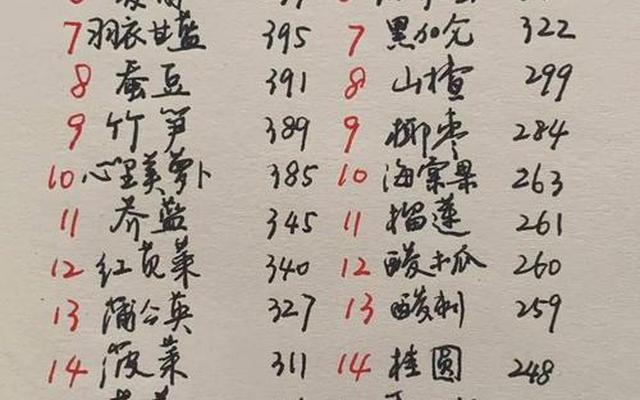 7 羽衣甘蓝 395 7 黑加仑 322
8 蚕豆 391 8 山楂 299
9 竹笋 389 9 椰枣 284
10 心里美萝卜 385 10 海棠果 263
11 芥蓝 345 11 榴莲 261
12 红苋菜 340 12 酸木瓜 260
13 蒲公英 327 13 酸刺 259
14 菠菜 311 14 桂圆 248